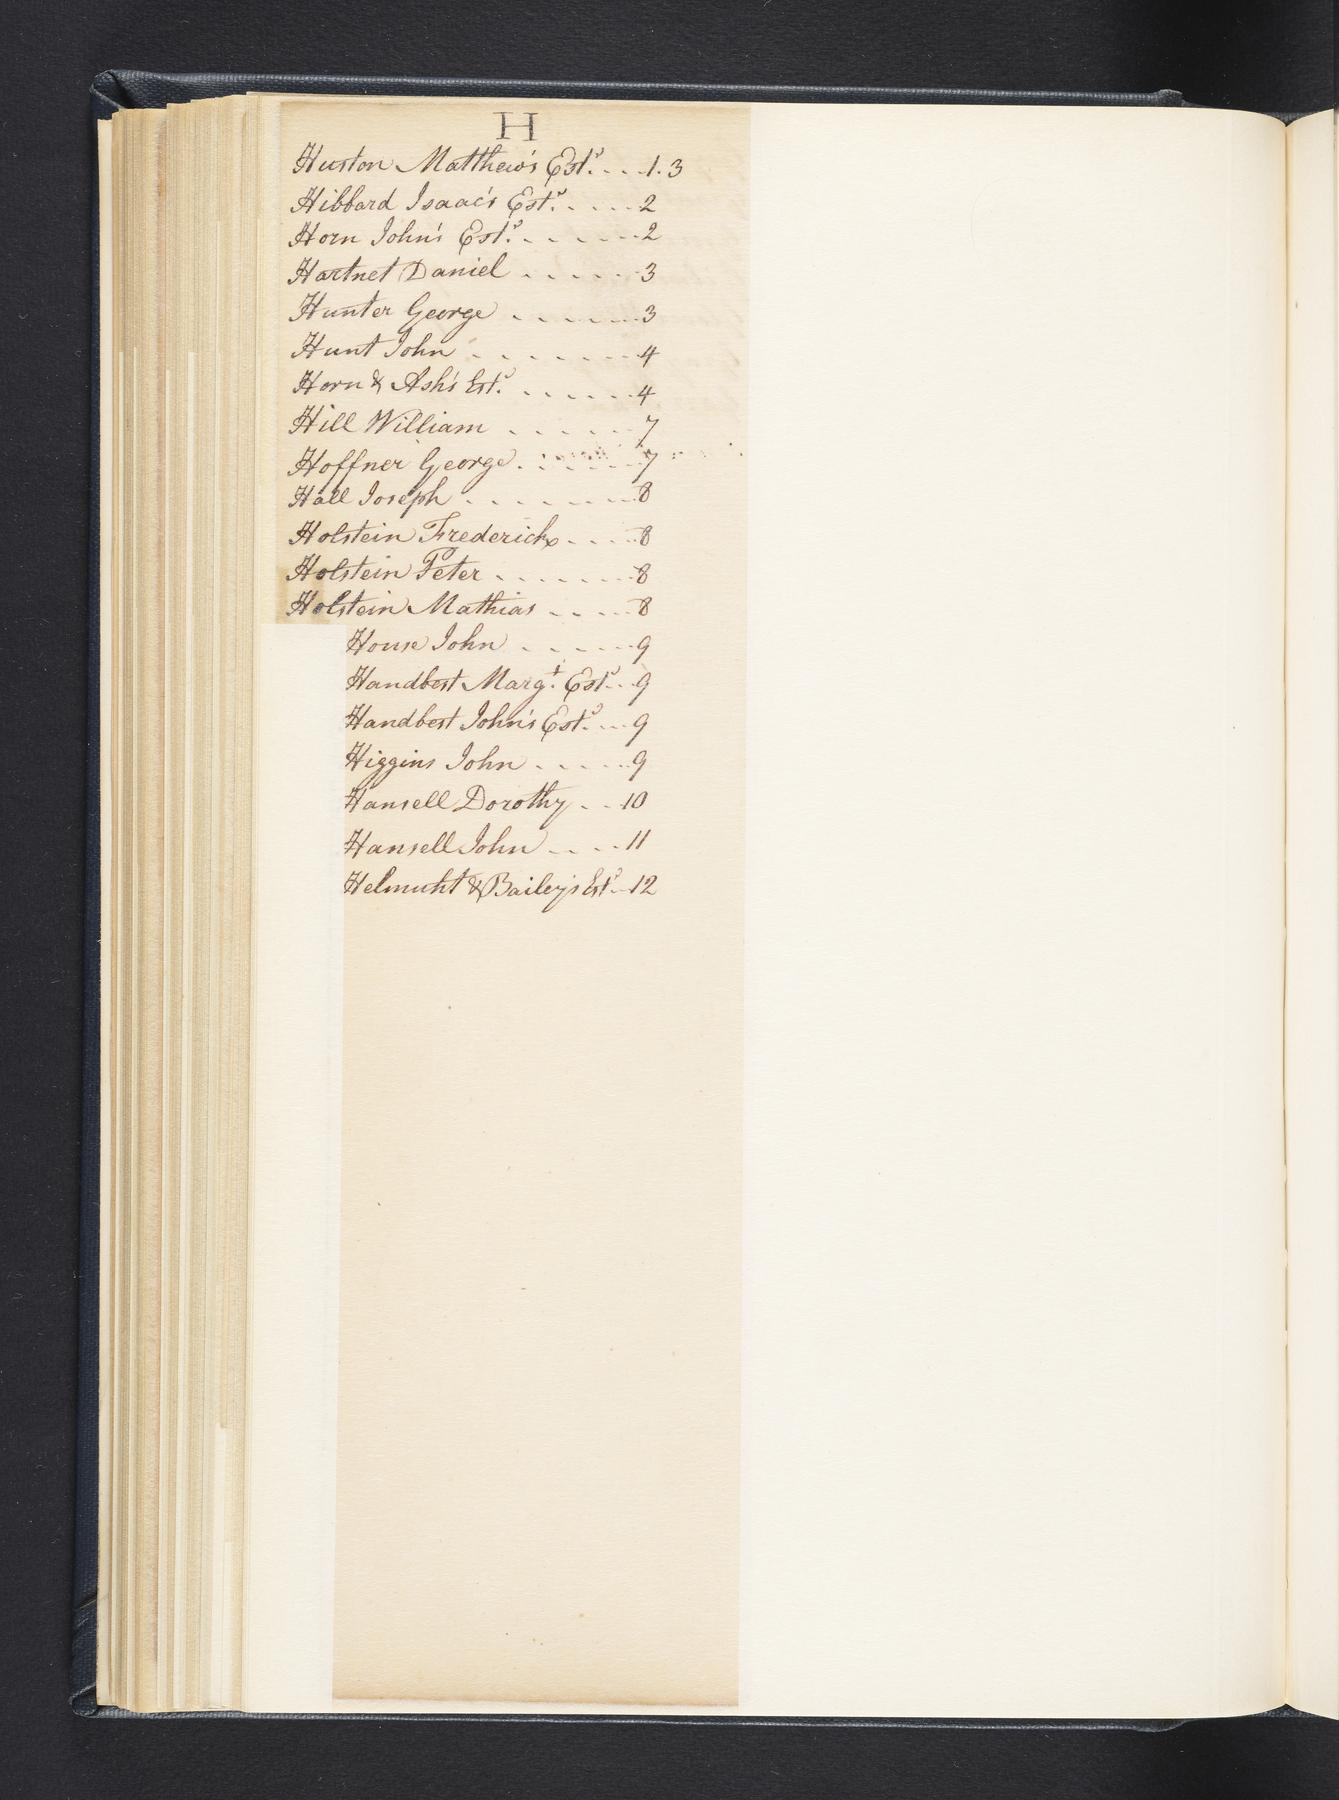 H
Huston Matthew's Est.s . . . 1. 3
Hibbard Isaac's Est.s . . . . 2
Horn John's Est.s . . . . . . 2
Hartnet Daniel . . . . . . 3
Hunter George . . . . . . 3
Hunt John . . . . . . . 4
Horn & Ash's Est.s . . . . . . 4
Hill William . . . . . 7
Hoffner George . . . . . . 7
Hall Joseph . . . . . . . 8
Holstein Frederick . . . . 8
Holstein Peter . . . . . . . 8
Holstein Mathias . . . . 8
House John . . . . . . 9
Handbest Marg.t Est.s . . 9
Handbest John's Est.s . . . 9
Higgins John . . . . . . 9
Hansell Dorothy . . . 10
Hansell John . . . . 11
Helmuht & Bailey's Est.s . . 12